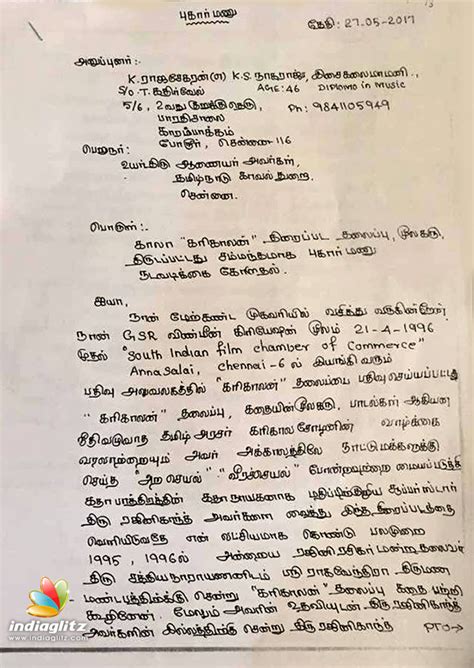 புகார் மனு
தேதி: 27-05-2017
அனுப்புனர்:-
K. ராஜசேகரன் (எ) K.S. நாகராஜா, இசைகலைமாமணி.,
S/O. T. கதிர்வேல் AGE: 46 Diploma in Music
5/6, 2வது குறுக்கு தெரு, Ph: 9841105949
பாரதிசாலை
காரம்பாக்கம்
போரூர், சென்னை 116
பெறுநர்:-
உயர்திரு ஆணையர் அவர்கள்,
தமிழ்நாடு காவல் துறை.
சென்னை.
பொருள்:-
காலா "கரிகாலன்" திரைப்பட தலைப்பு, மூலகரு,
திருடப்பட்டது சம்மந்தமாக புகார் மனு
நடவடிக்கை கோருதல்.
ஐயா,
நான் மேற்கண்ட முகவரியில் வசித்து வருகின்றேன்.
நான் GSR விண்மீன் கிரியேஷன் மூலம் 21-4-1996
முதல் "South Indian film chamber of Commerce"
Anna Salai, chennai-6 ல் இயங்கி வரும்
பதிவு அலுவலகத்தில் "கரிகாலன்" தலைப்பை பதிவு செய்யப்பட்டது
"கரிகாலன்" தலைப்பு, கதையின் மூலகரு, பாடல்கள் ஆகியன
நீதிவழுவாத தமிழ் அரசர் கரிகால சோழனின் வாழ்க்கை
வரலாற்றையும் அவர் அக்காலத்திலே நாட்டு மக்களுக்கு
செய்த "அற செயல்" "வீரச்செயல்" போன்றவற்றை மையப்படுத்தி
கதா பாத்திரத்தின் கதா நாயகனாக சூப்பர் ஸ்டார்
திரு ரஜினிகாந்த் அவர்களை வைத்து இந்த திரைப்படத்தை
வெளியிடுவதே என் லட்சியமாக கொண்டு பலமுறை
1995, 1996ல் அன்றைய ரஜினி ரசிகர் மன்ற தலைவர்
திரு சத்திய நாராயணனிடம் ராகவேந்திரா திருமண
மண்டபத்திற்கு சென்று "கரிகாலன்" தலைப்பு கதை பற்றி
கூறினேன். மேலும் அவரின் உதவியுடன் திரு ரஜினிகாந்த்
அவர்களின் இல்லத்திற்கு சென்று திரு ரஜினிகாந்த் PTO→
indiaglitz
www.indiaglitz.com